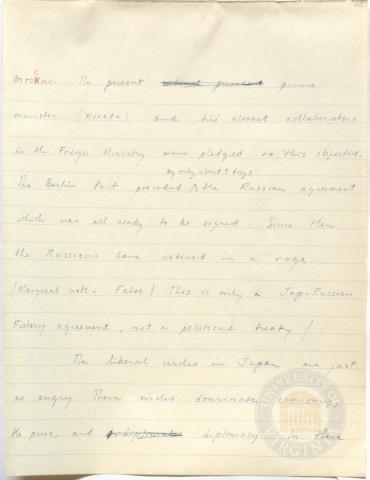 22
Moscow. The present ~~cabinet president~~ prime
minister (Hirota) and his closest collaborators
in the Foreign Ministry were pledged to this objective.
by only about 5 days
The Berlin Pact preceded ∧ the Russian agreement
which was all ready to be signed. Since then
the Russians have retired in a rage
/Marginal note. False! This is only a Jap-Russian
Fishery agreement, not a political treaty/
The liberal circles in Japan are just
as angry. These circles dominate economics
the press, and diplomacy. In these
UNIVERSITY OF VIRGINIA